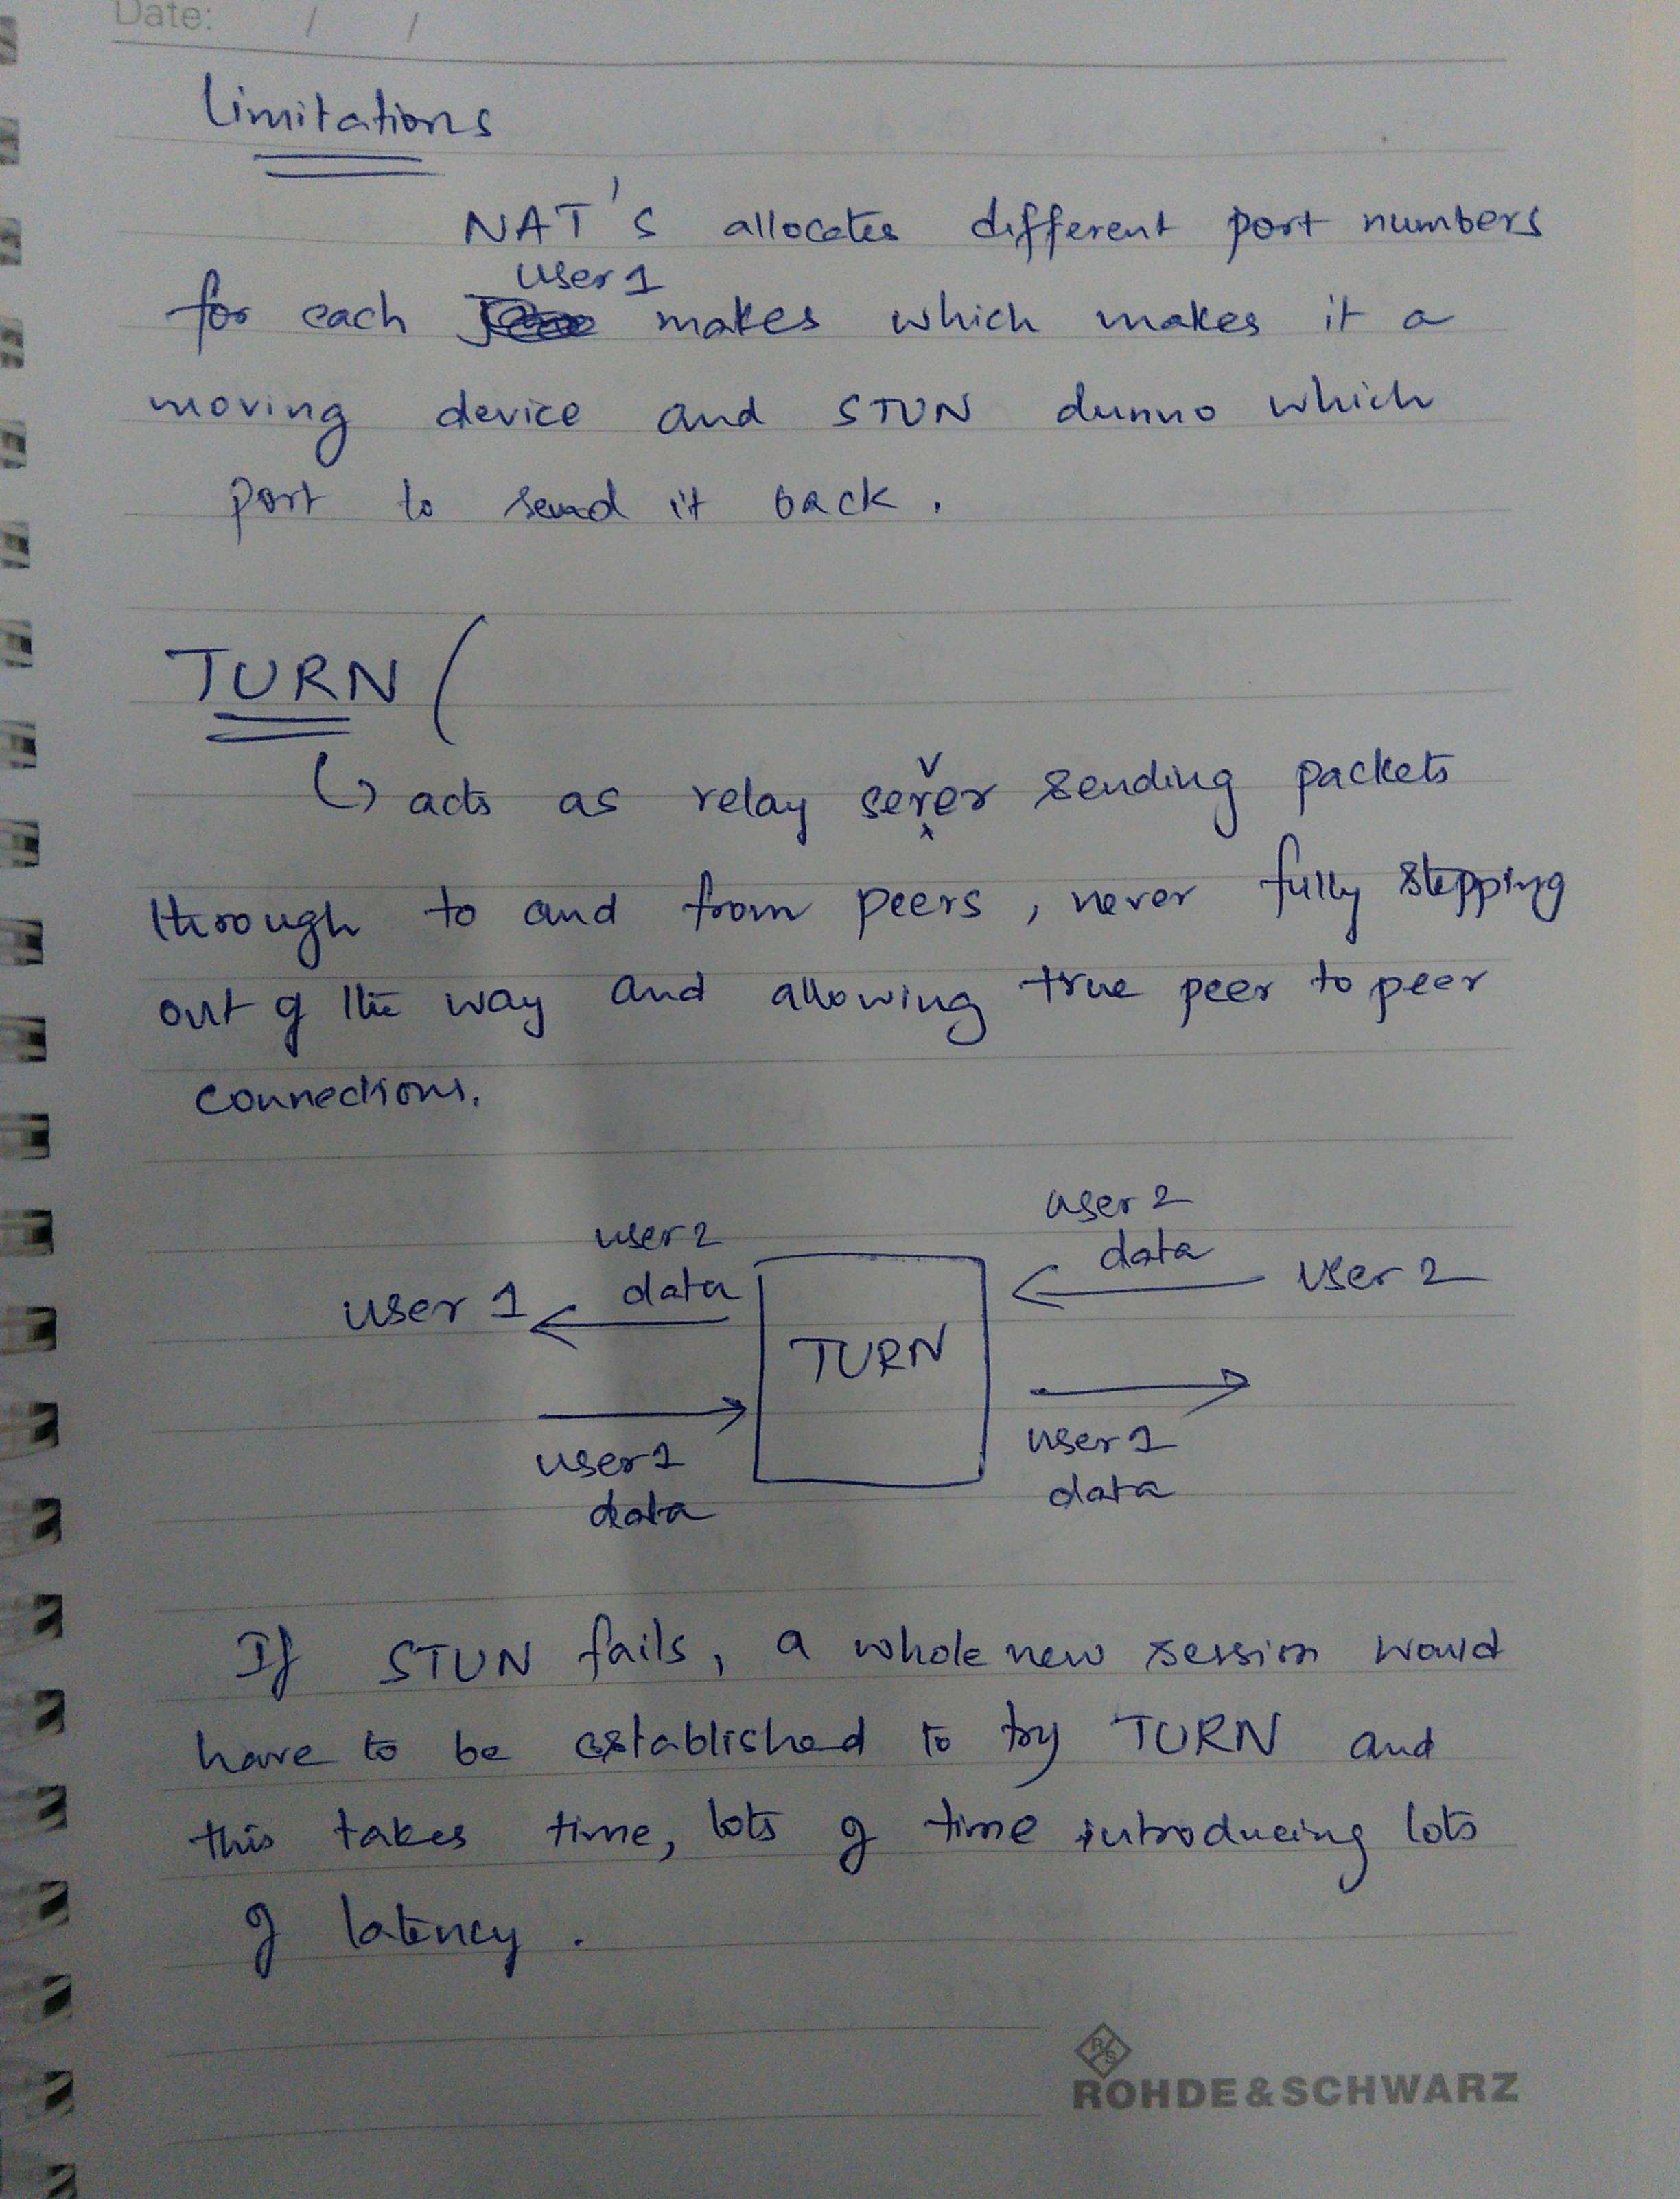 Date: / /
Limitations
NAT's allocates different port numbers
user 1
for each makes which makes it a
moving device and STUN dunno which
port to send it back.
TURN (
↳ acts as relay server sending packets
through to and from peers, never fully stepping
out of the way and allowing true peer to peer
connections.
user 2
data
user 1
user 2
data
user 2
TURN
user 1
data
user 1
data
If STUN fails, a whole new session would
have to be established to try TURN and
this takes time, lots of time introducing lots
of latency.
R&S
ROHDE & SCHWARZ